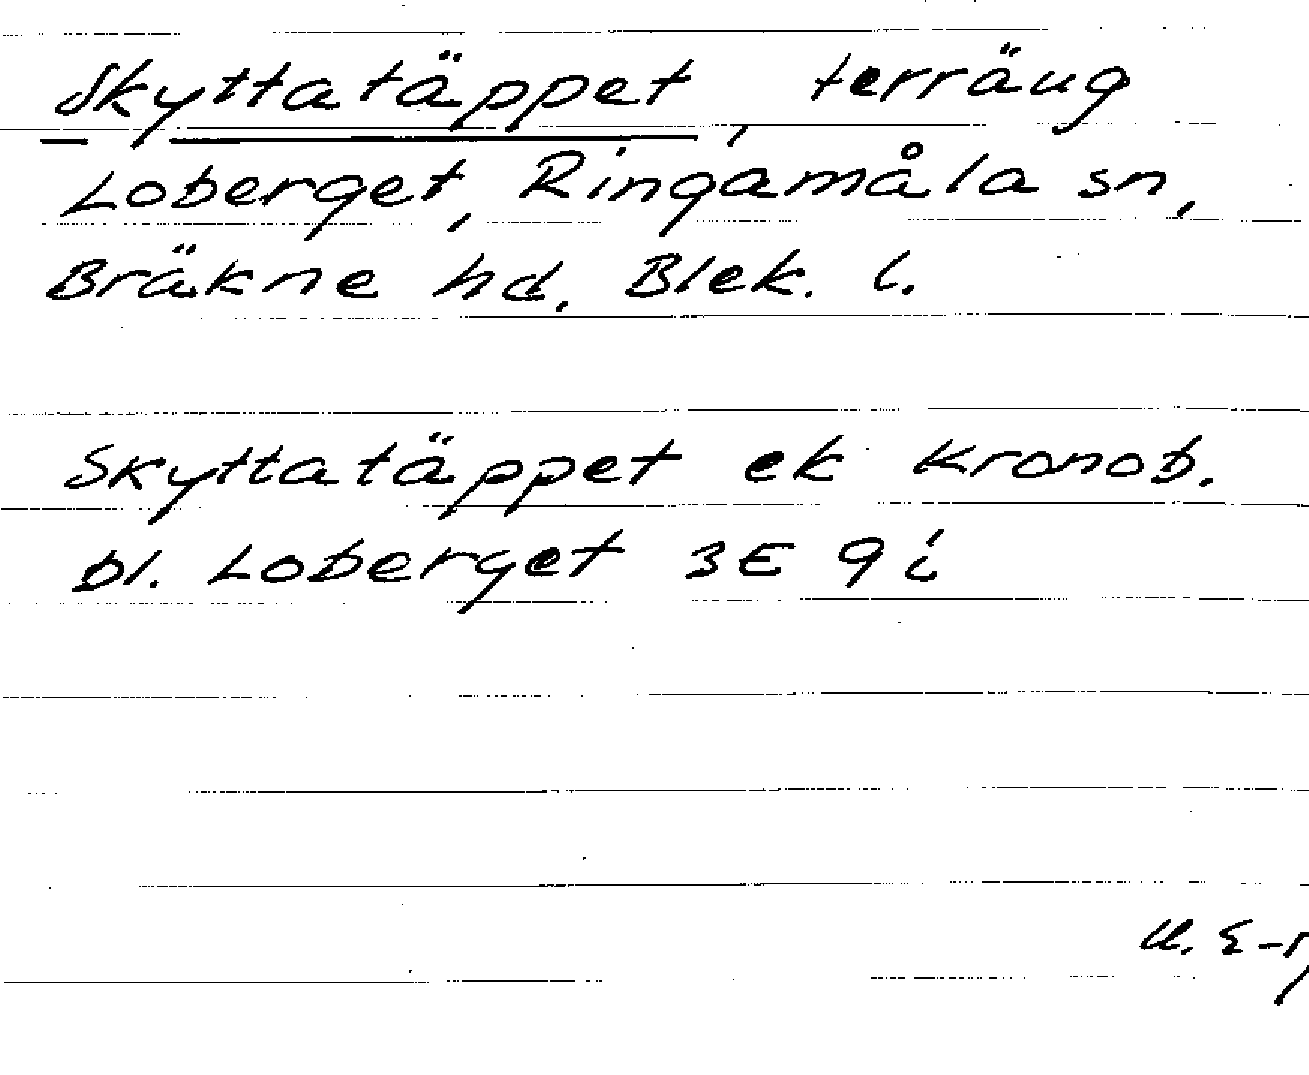 Skyttatäppet, terräng
Loberget, Ringamåla sn,
Bräkne hd. Blek. l.
Skyttatäppet ek Kronob.
bl. Loberget 3E 9i